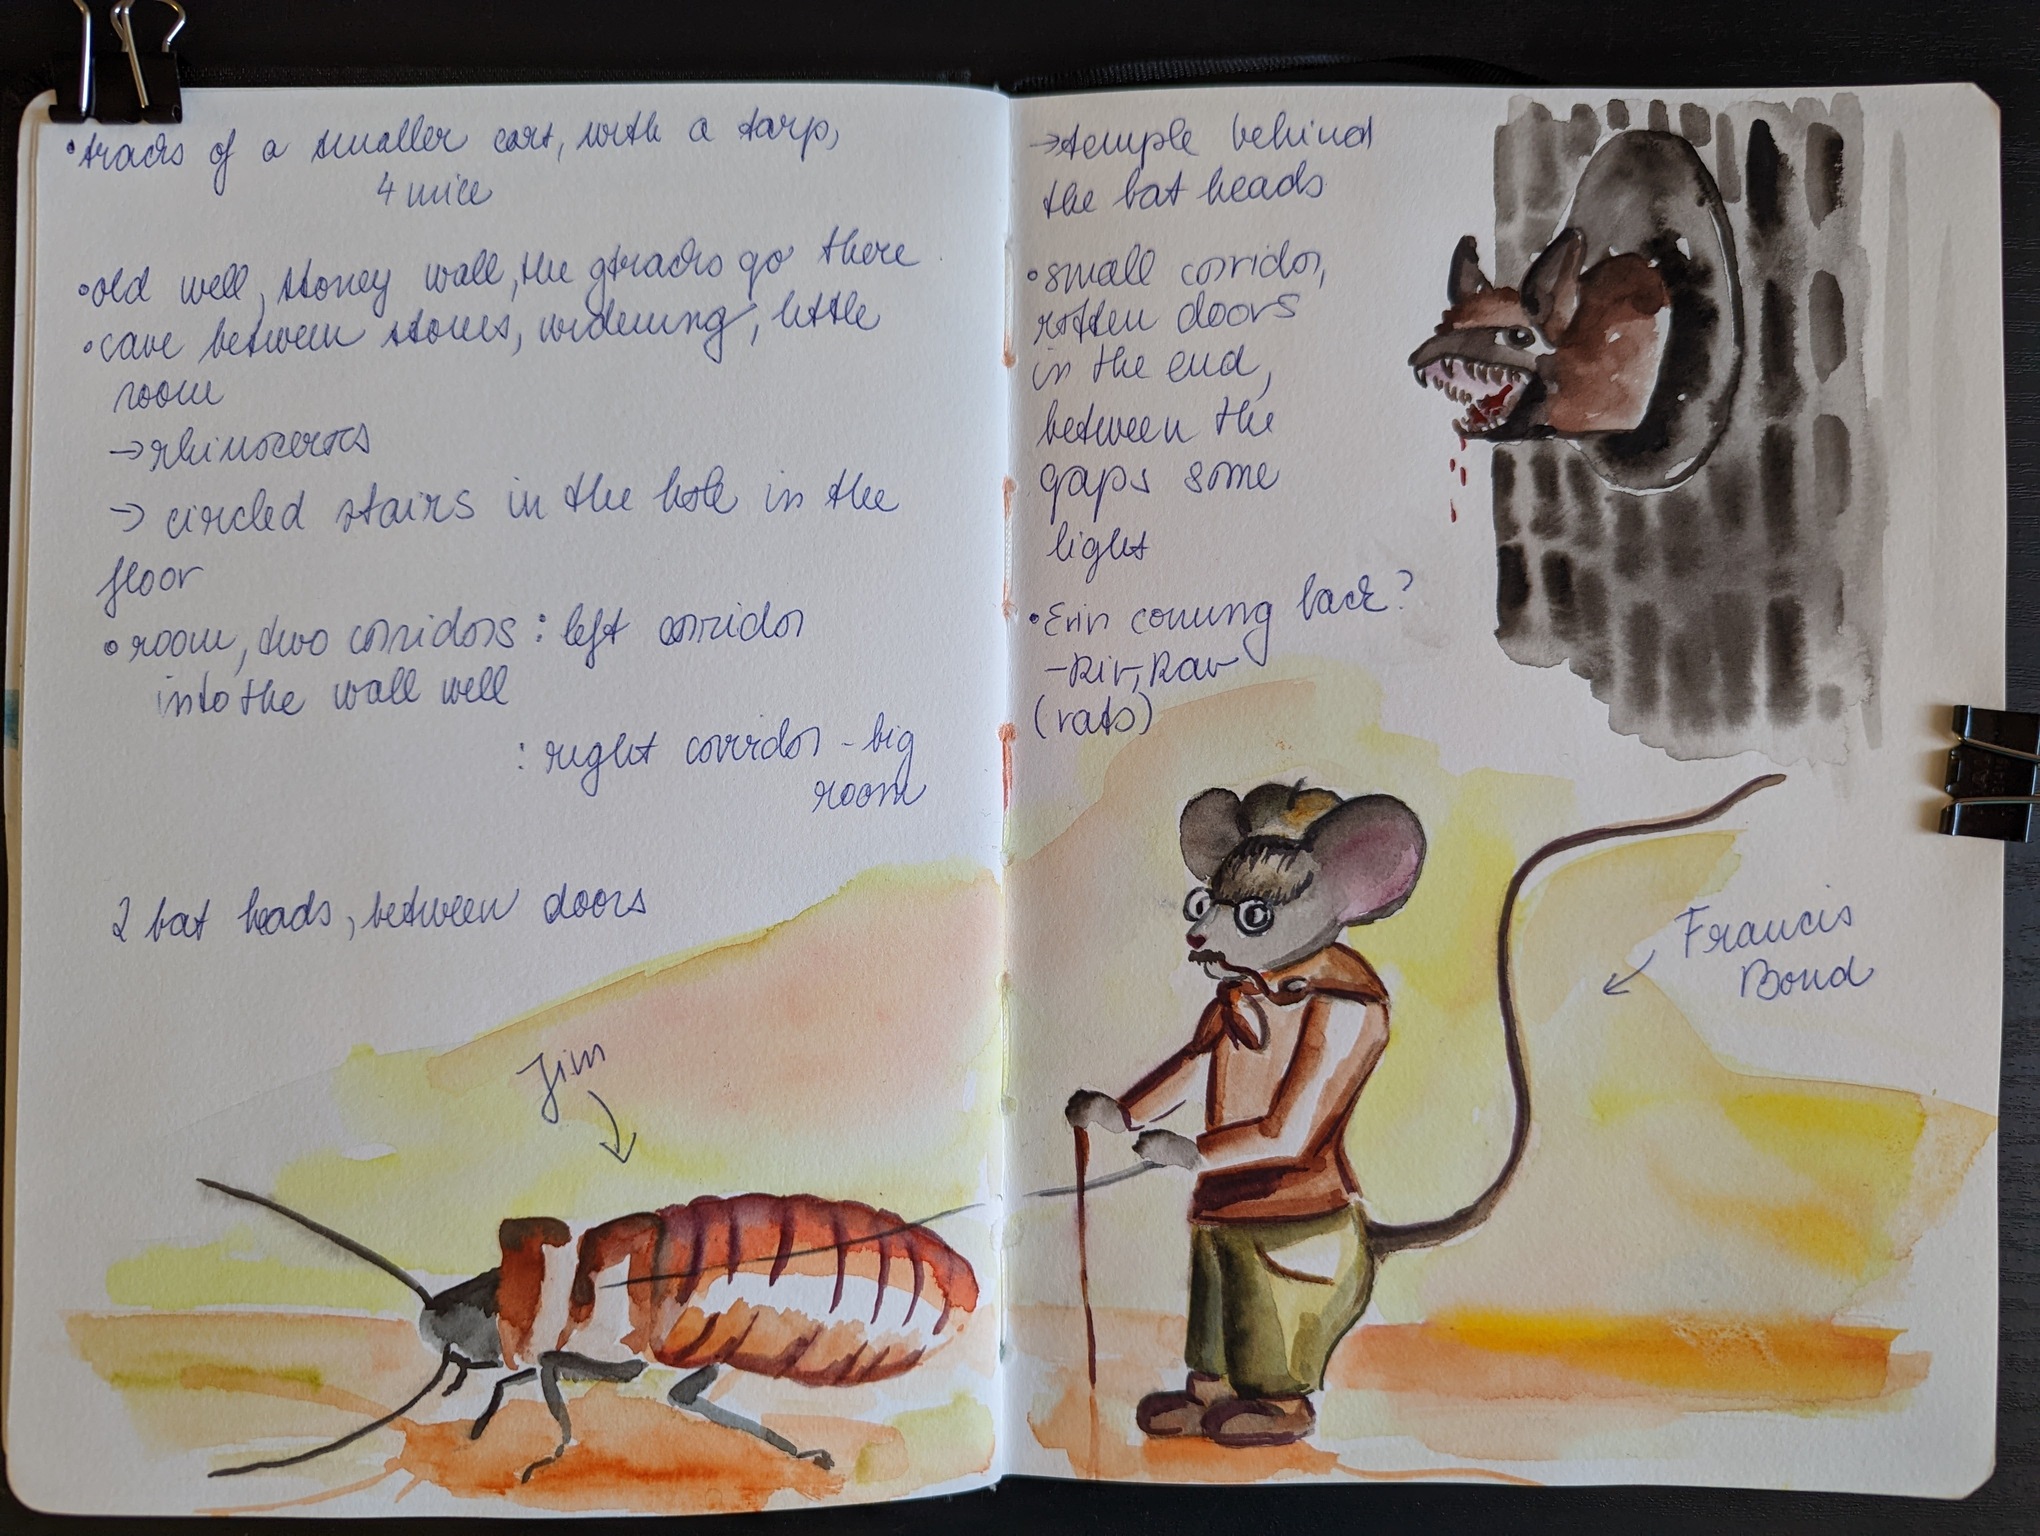 •tracks of a smaller cart, with a tarp,
4 mice
•old well, stoney wall, the tracks go there
•cave between stones, widening, little
room
→rhinoceros
→ circled stairs in the hole in the
floor
•room, two corridors : left corridor
into the wall well
: right corridor - big
room
2 bat heads, between doors
Jim
→temple behind
the bat heads
•small corridor,
rotten doors
in the end,
between the
gaps some
light
•Erin coming back?
-Rir, Rar
(rats)
Francis
Bond